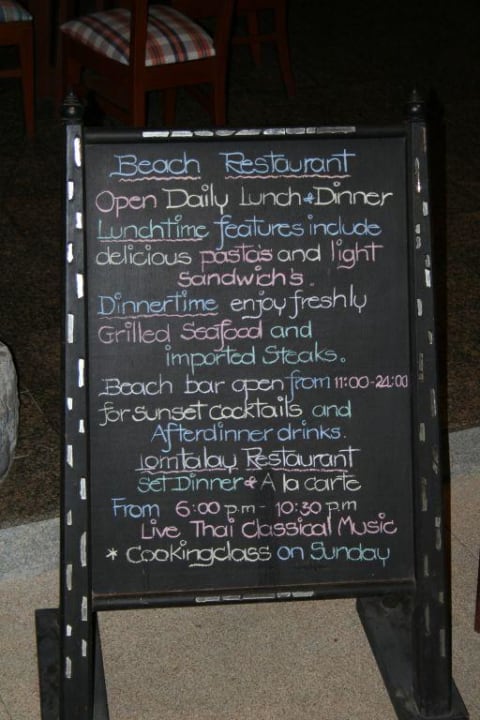 Beach Restaurant
Open Daily Lunch & Dinner
Lunchtime features include
delicious pasta's and light
Sandwich's.
Dinnertime enjoy freshly
Grilled Seafood and
imported Steaks.
Beach bar open from 11:00-24:00
for sunset cocktails and
Afterdinner drinks.
Lomtalay Restaurant
Set Dinner & A la carte
From 6:00 pm - 10:30 pm
Live Thai Classical Music
* Cookingclass on Sunday